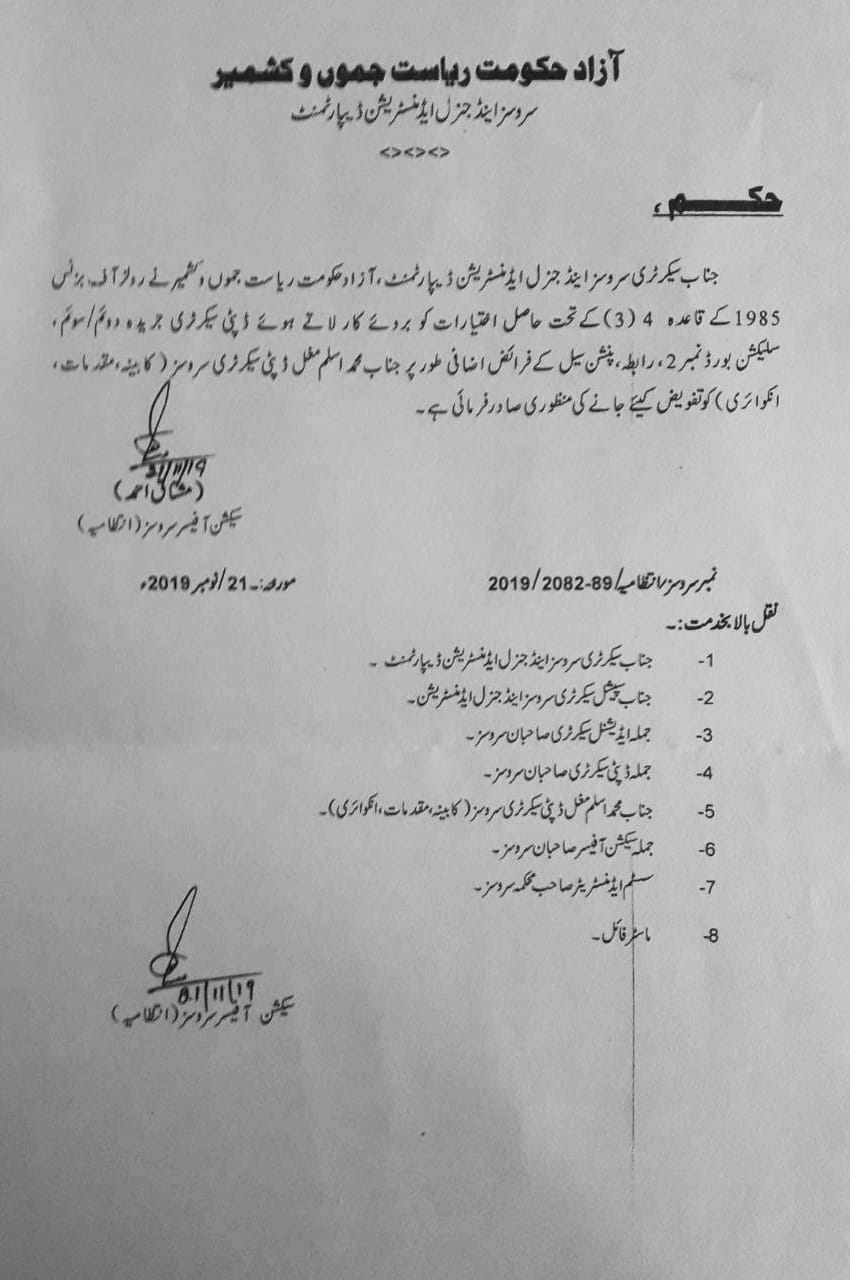 آزاد حکومت ریاست جموں و کشمیر
سروسز اینڈ جنرل ایڈمنسٹریشن ڈیپارٹمنٹ
<><><>
حکم،
جناب سیکرٹری سروسز اینڈ جنرل ایڈمنسٹریشن ڈیپارٹمنٹ، آزاد حکومت ریاست جموں و کشمیر نے رولز آف بزنس
1985 کے قاعدہ 4 (3) کے تحت حاصل اختیارات کو بروئے کار لاتے ہوئے ڈپٹی سیکرٹری جریدہ دوئم/سوئم،
سلیکشن بورڈ نمبر 2، رابطہ، پنشن سیل کے فرائض اضافی طور پر جناب محمد اسلم مغل ڈپٹی سیکرٹری سروسز (کابینہ، مقدمات،
انکوائری) کو تفویض کیئے جانے کی منظوری صادر فرمائی ہے۔
21/11/19
(مشتاق احمد)
سیکشن آفیسر سروسز (انتظامیہ)
نمبر سروسز/انتظامیہ/2082-89/2019 مورخہ:۔ 21/نومبر 2019ء
نقل بالا بخدمت:۔
1- جناب سیکرٹری سروسز اینڈ جنرل ایڈمنسٹریشن ڈیپارٹمنٹ۔
2- جناب سپیشل سیکرٹری سروسز اینڈ جنرل ایڈمنسٹریشن۔
3- جملہ ایڈیشنل سیکرٹری صاحبان سروسز۔
4- جملہ ڈپٹی سیکرٹری صاحبان سروسز۔
5- جناب محمد اسلم مغل ڈپٹی سیکرٹری سروسز (کابینہ، مقدمات، انکوائری)۔
6- جملہ سیکشن آفیسر صاحبان سروسز۔
7- سسٹم ایڈمنسٹریٹر صاحب محکمہ سروسز۔
8- ماسٹر فائل۔
21/11/19
سیکشن آفیسر سروسز (انتظامیہ)